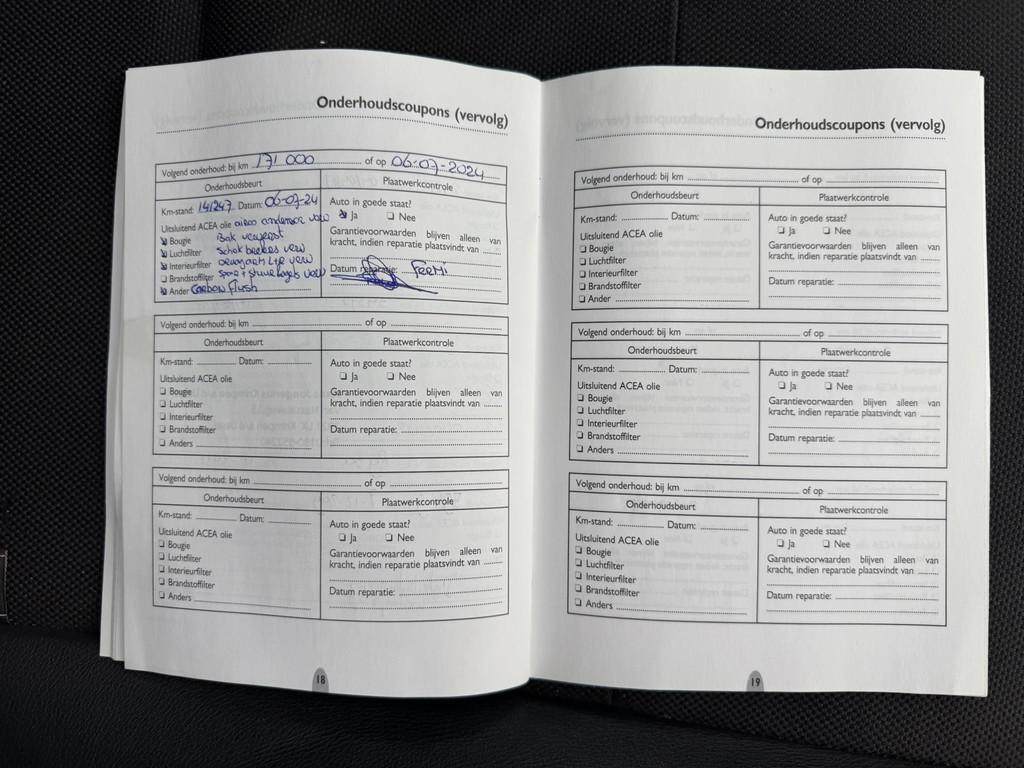 Onderhoudscoupons (vervolg)
Volgend onderhoud: bij km 171 000 of op 06-07-2024
Onderhoudsbeurt Plaatwerkcontrole
Km-stand: 141247 Datum: 06-07-24 Auto in goede staat?
Ja Nee
Uitsluitend ACEA olie airco condensor verv
Bougie Bak
Garantievoorwaarden blijven alleen van
kracht, indien reparatie plaatsvindt van
Luchtfilter verv
Interieurfilter verv
Brandstoffilter verv
Datum reparatie:
Ander Carbon flush
Volgend onderhoud: bij km of op
Onderhoudsbeurt Plaatwerkcontrole
Km-stand: Datum: Auto in goede staat?
Ja Nee
Uitsluitend ACEA olie
Bougie
Garantievoorwaarden blijven alleen van
kracht, indien reparatie plaatsvindt van
Luchtfilter
Interieurfilter
Brandstoffilter
Datum reparatie:
Anders
Volgend onderhoud: bij km of op
Onderhoudsbeurt Plaatwerkcontrole
Km-stand: Datum: Auto in goede staat?
Ja Nee
Uitsluitend ACEA olie
Bougie
Garantievoorwaarden blijven alleen van
kracht, indien reparatie plaatsvindt van
Luchtfilter
Interieurfilter
Brandstoffilter
Datum reparatie:
Anders
18
Onderhoudscoupons (vervolg)
Volgend onderhoud: bij km of op
Onderhoudsbeurt Plaatwerkcontrole
Km-stand: Datum: Auto in goede staat?
Ja Nee
Uitsluitend ACEA olie
Bougie
Garantievoorwaarden blijven alleen van
kracht, indien reparatie plaatsvindt van
Luchtfilter
Interieurfilter
Brandstoffilter
Datum reparatie:
Ander
Volgend onderhoud: bij km of op
Onderhoudsbeurt Plaatwerkcontrole
Km-stand: Datum: Auto in goede staat?
Ja Nee
Uitsluitend ACEA olie
Bougie
Garantievoorwaarden blijven alleen van
kracht, indien reparatie plaatsvindt van
Luchtfilter
Interieurfilter
Brandstoffilter
Datum reparatie:
Anders
Volgend onderhoud: bij km of op
Onderhoudsbeurt Plaatwerkcontrole
Km-stand: Datum: Auto in goede staat?
Ja Nee
Uitsluitend ACEA olie
Bougie
Garantievoorwaarden blijven alleen van
kracht, indien reparatie plaatsvindt van
Luchtfilter
Interieurfilter
Brandstoffilter
Datum reparatie:
Anders
19